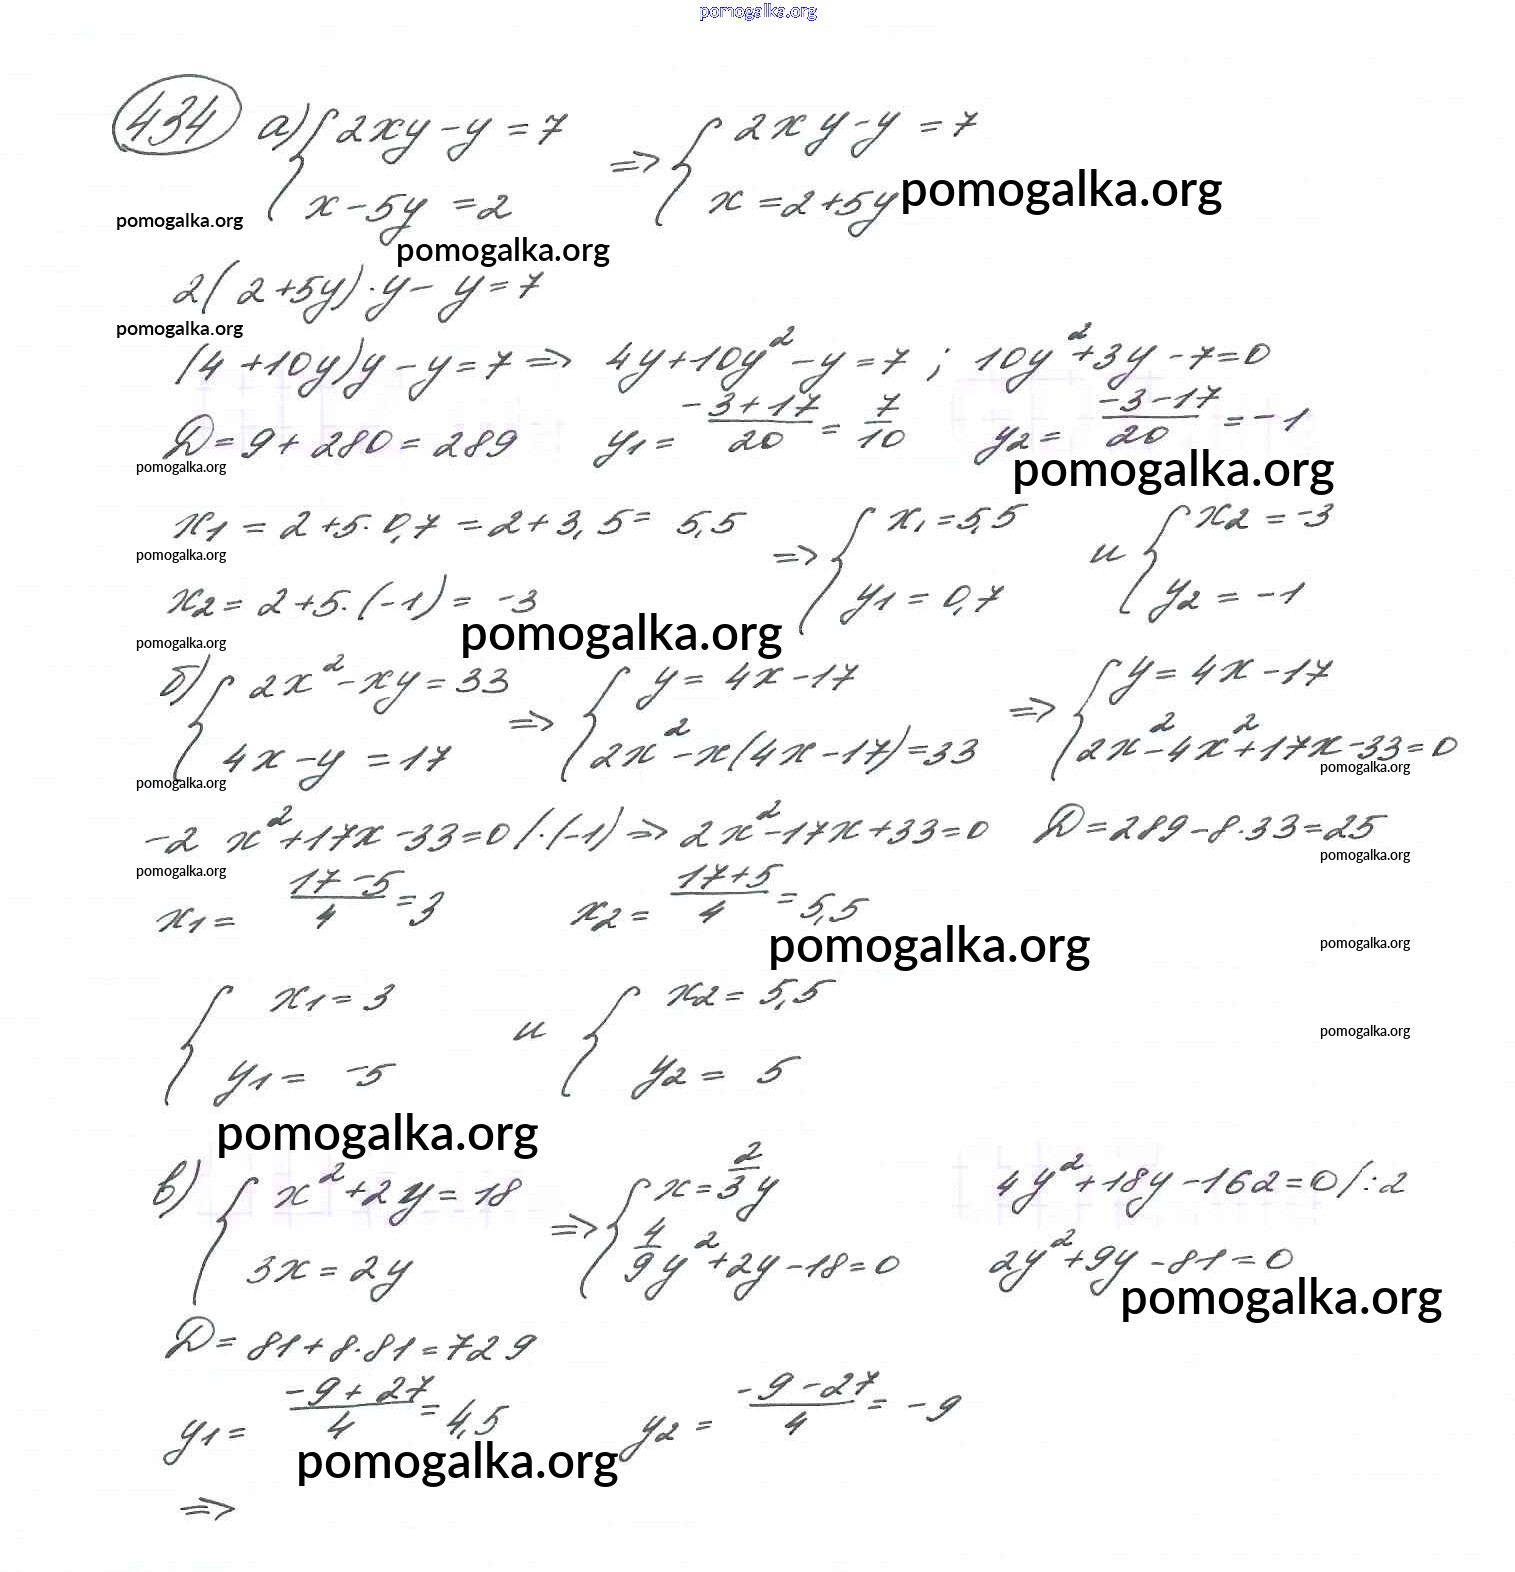 pomogalka.org
434 а) { 2xy - y = 7 => { 2xy - y = 7
x - 5y = 2 x = 2 + 5y pomogalka.org
pomogalka.org pomogalka.org
2(2+5y)·y - y = 7
pomogalka.org
(4+10y)y - y = 7 => 4y + 10y² - y = 7 ; 10y² + 3y - 7 = 0
D = 9 + 280 = 289 y1 = (-3+17)/20 = 7/10 y2 = (-3-17)/20 = -1
pomogalka.org pomogalka.org
x1 = 2 + 5·0,7 = 2 + 3,5 = 5,5 => { x1 = 5,5 и { x2 = -3
pomogalka.org
x2 = 2 + 5·(-1) = -3 y1 = 0,7 y2 = -1
pomogalka.org pomogalka.org
б) { 2x² - xy = 33 => { y = 4x - 17 => { y = 4x - 17
4x - y = 17 2x² - x(4x - 17) = 33 2x² - 4x² + 17x - 33 = 0
pomogalka.org pomogalka.org
-2 x² + 17x - 33 = 0 /·(-1) => 2x² - 17x + 33 = 0 D = 289 - 8·33 = 25
pomogalka.org pomogalka.org
x1 = (17-5)/4 = 3 x2 = (17+5)/4 = 5,5
pomogalka.org pomogalka.org
{ x1 = 3 и { x2 = 5,5
pomogalka.org
y1 = -5 y2 = 5
pomogalka.org
в) { x² + 2y = 18 => { x = 2/3 y 4y² + 18y - 162 = 0 /:2
3x = 2y 4/9 y² + 2y - 18 = 0 2y² + 9y - 81 = 0
pomogalka.org
D = 81 + 8·81 = 729
y1 = (-9+27)/4 = 4,5 y2 = (-9-27)/4 = -9
pomogalka.org
=>